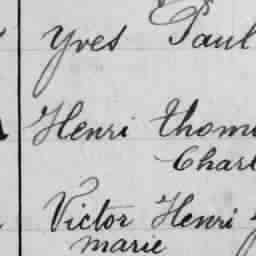 Yves Paul
Henri thom
Charl
Victor Henri
marie